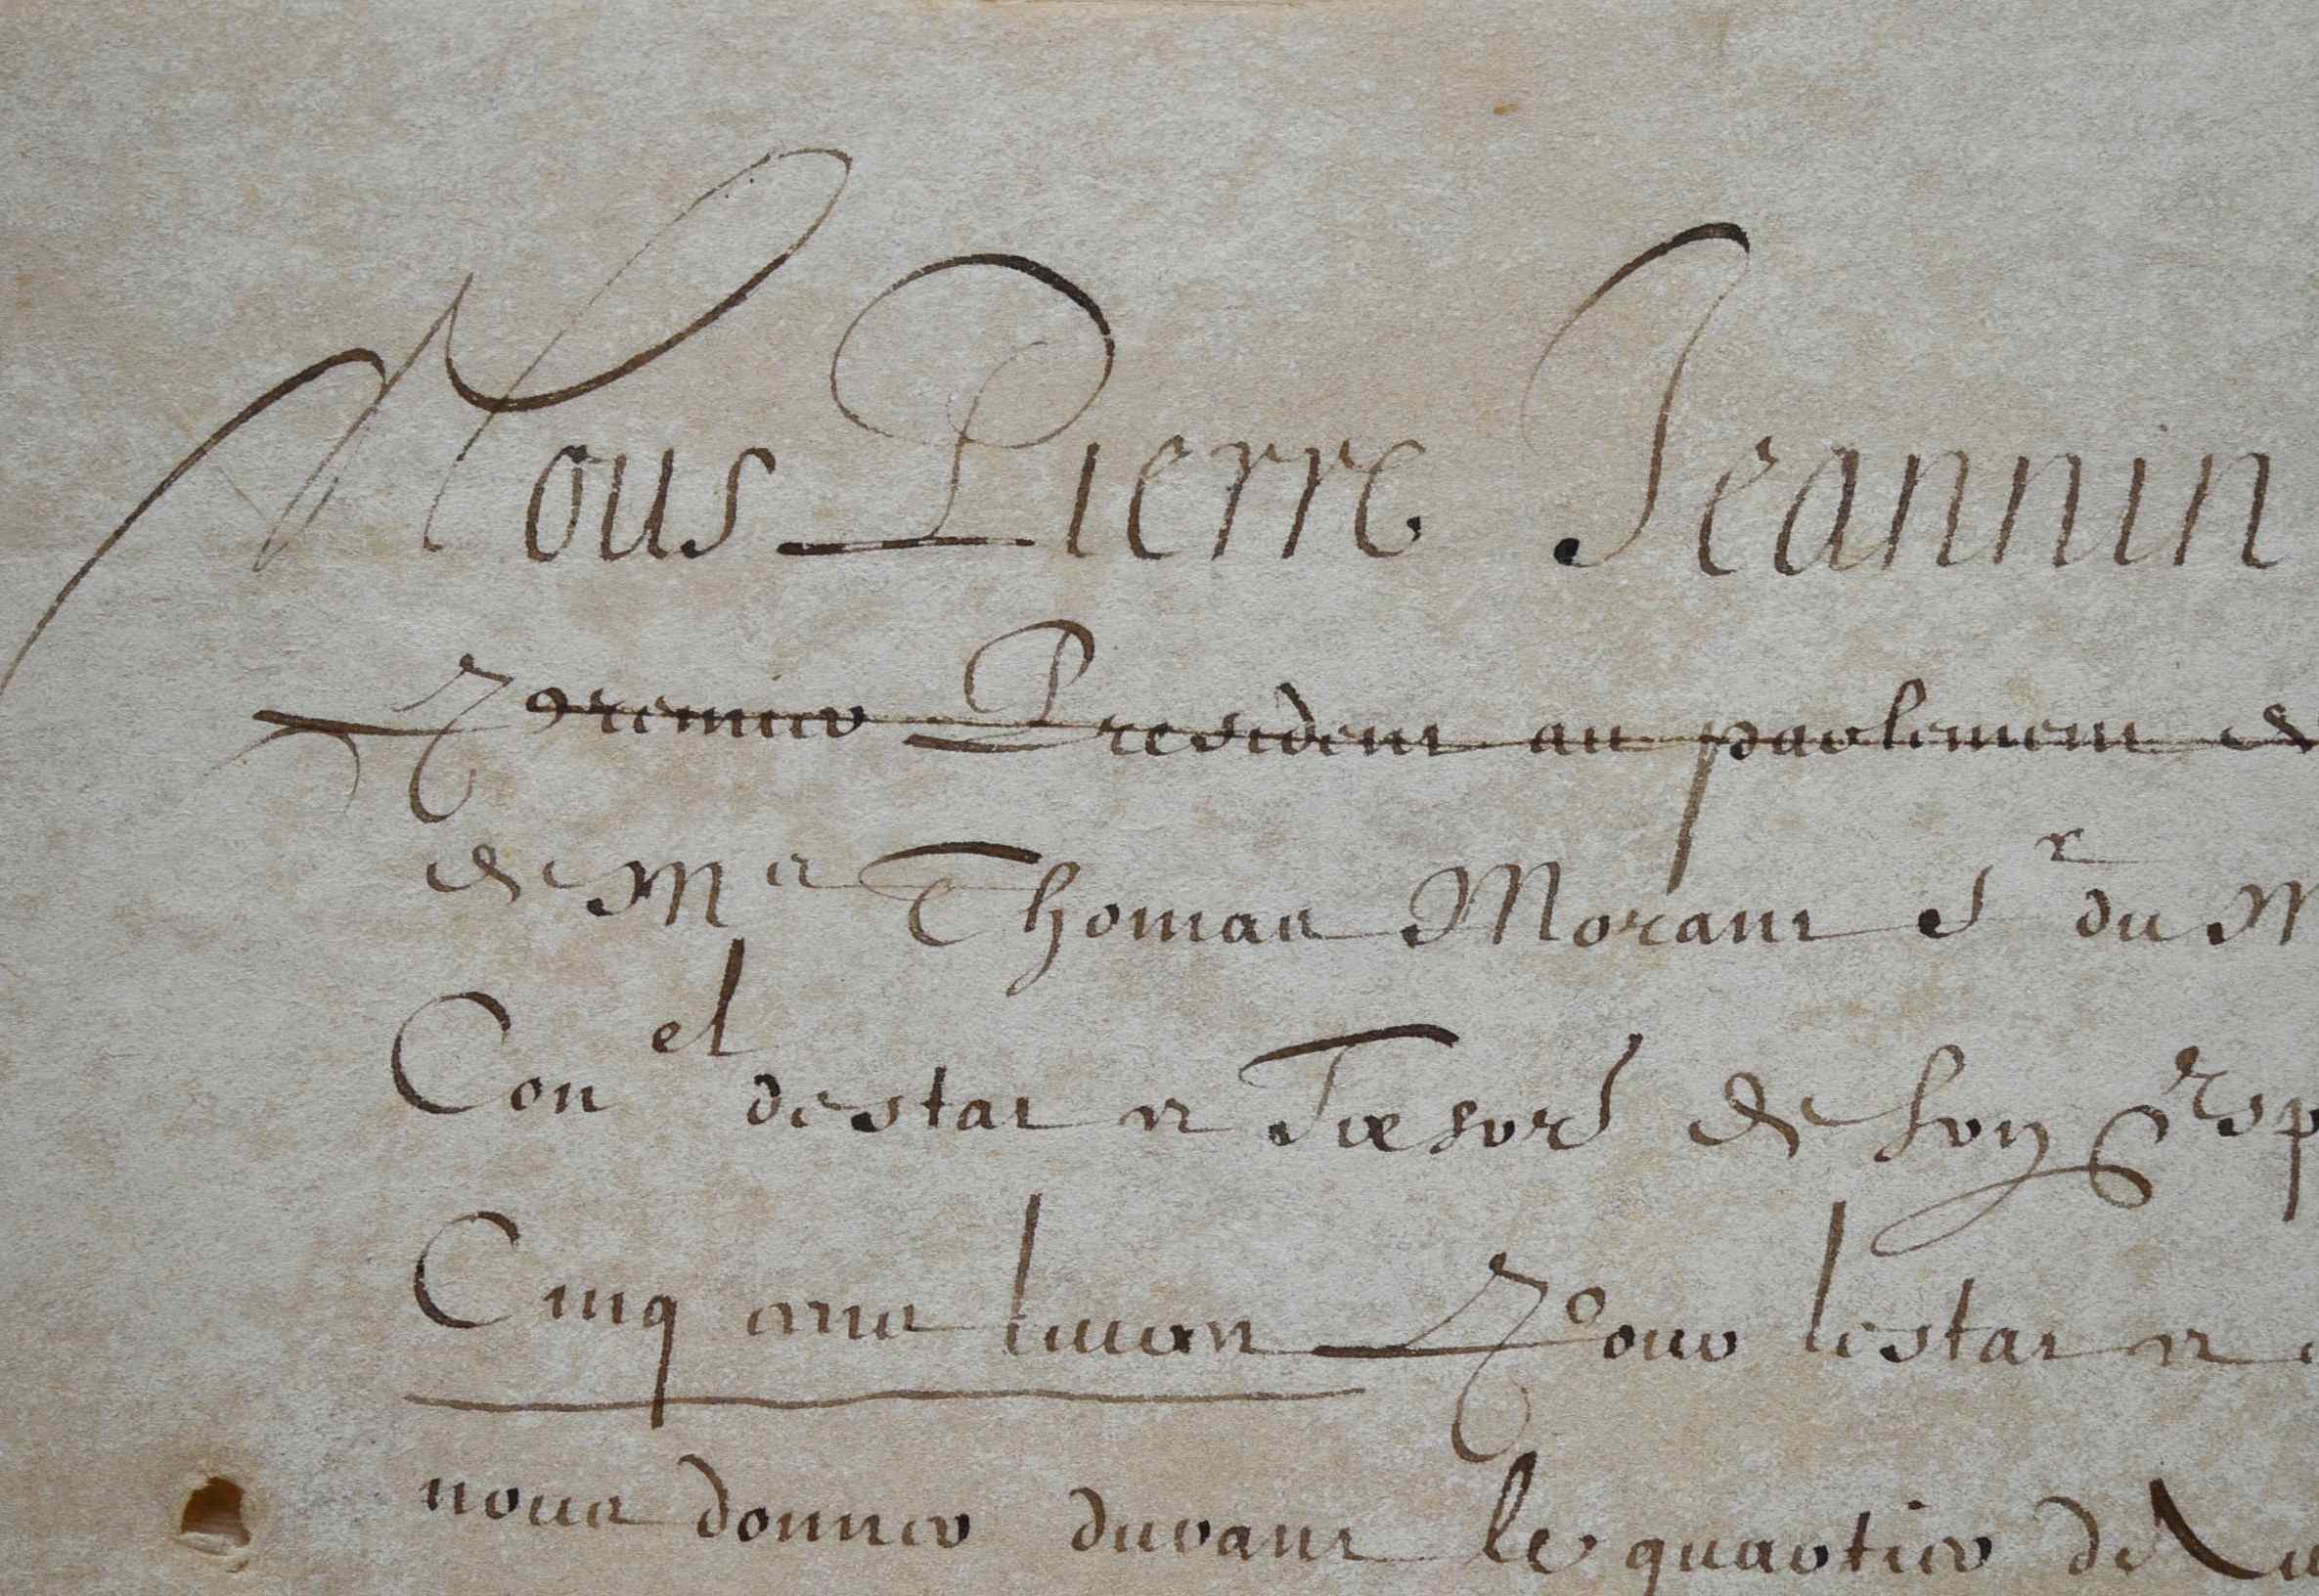 Nous Pierre Jeannin
premier President au parlement d
de Me Thomas Morant Sr du M
Conel destat et Tresorr de son Esp
Cinq cens livres pour lestat et
nous donner durant le quartier de